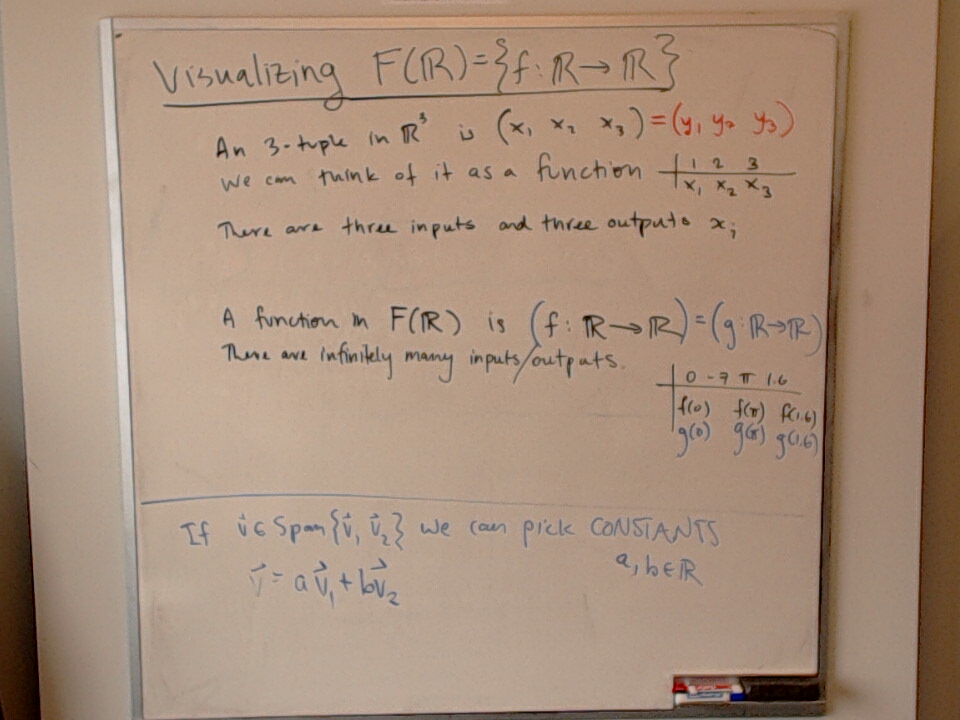 Visualizing F(ℝ)={f: ℝ→ℝ}
An 3-tuple in ℝ³ is (x₁ x₂ x₃)=(y₁ y₂ y₃)
We can think of it as a function
1 2 3
x₁ x₂ x₃
There are three inputs and three outputs xᵢ
A function in F(ℝ) is (f: ℝ→ℝ)=(g: ℝ→ℝ)
There are infinitely many inputs/outputs.
0 -7 π 1.6
f(0) f(π) f(1.6)
g(0) g(π) g(1.6)
If v⃗ ∈ Span{v⃗₁ v⃗₂} we can pick CONSTANTS
a, b ∈ ℝ
v⃗ = a v⃗₁ + b v⃗₂